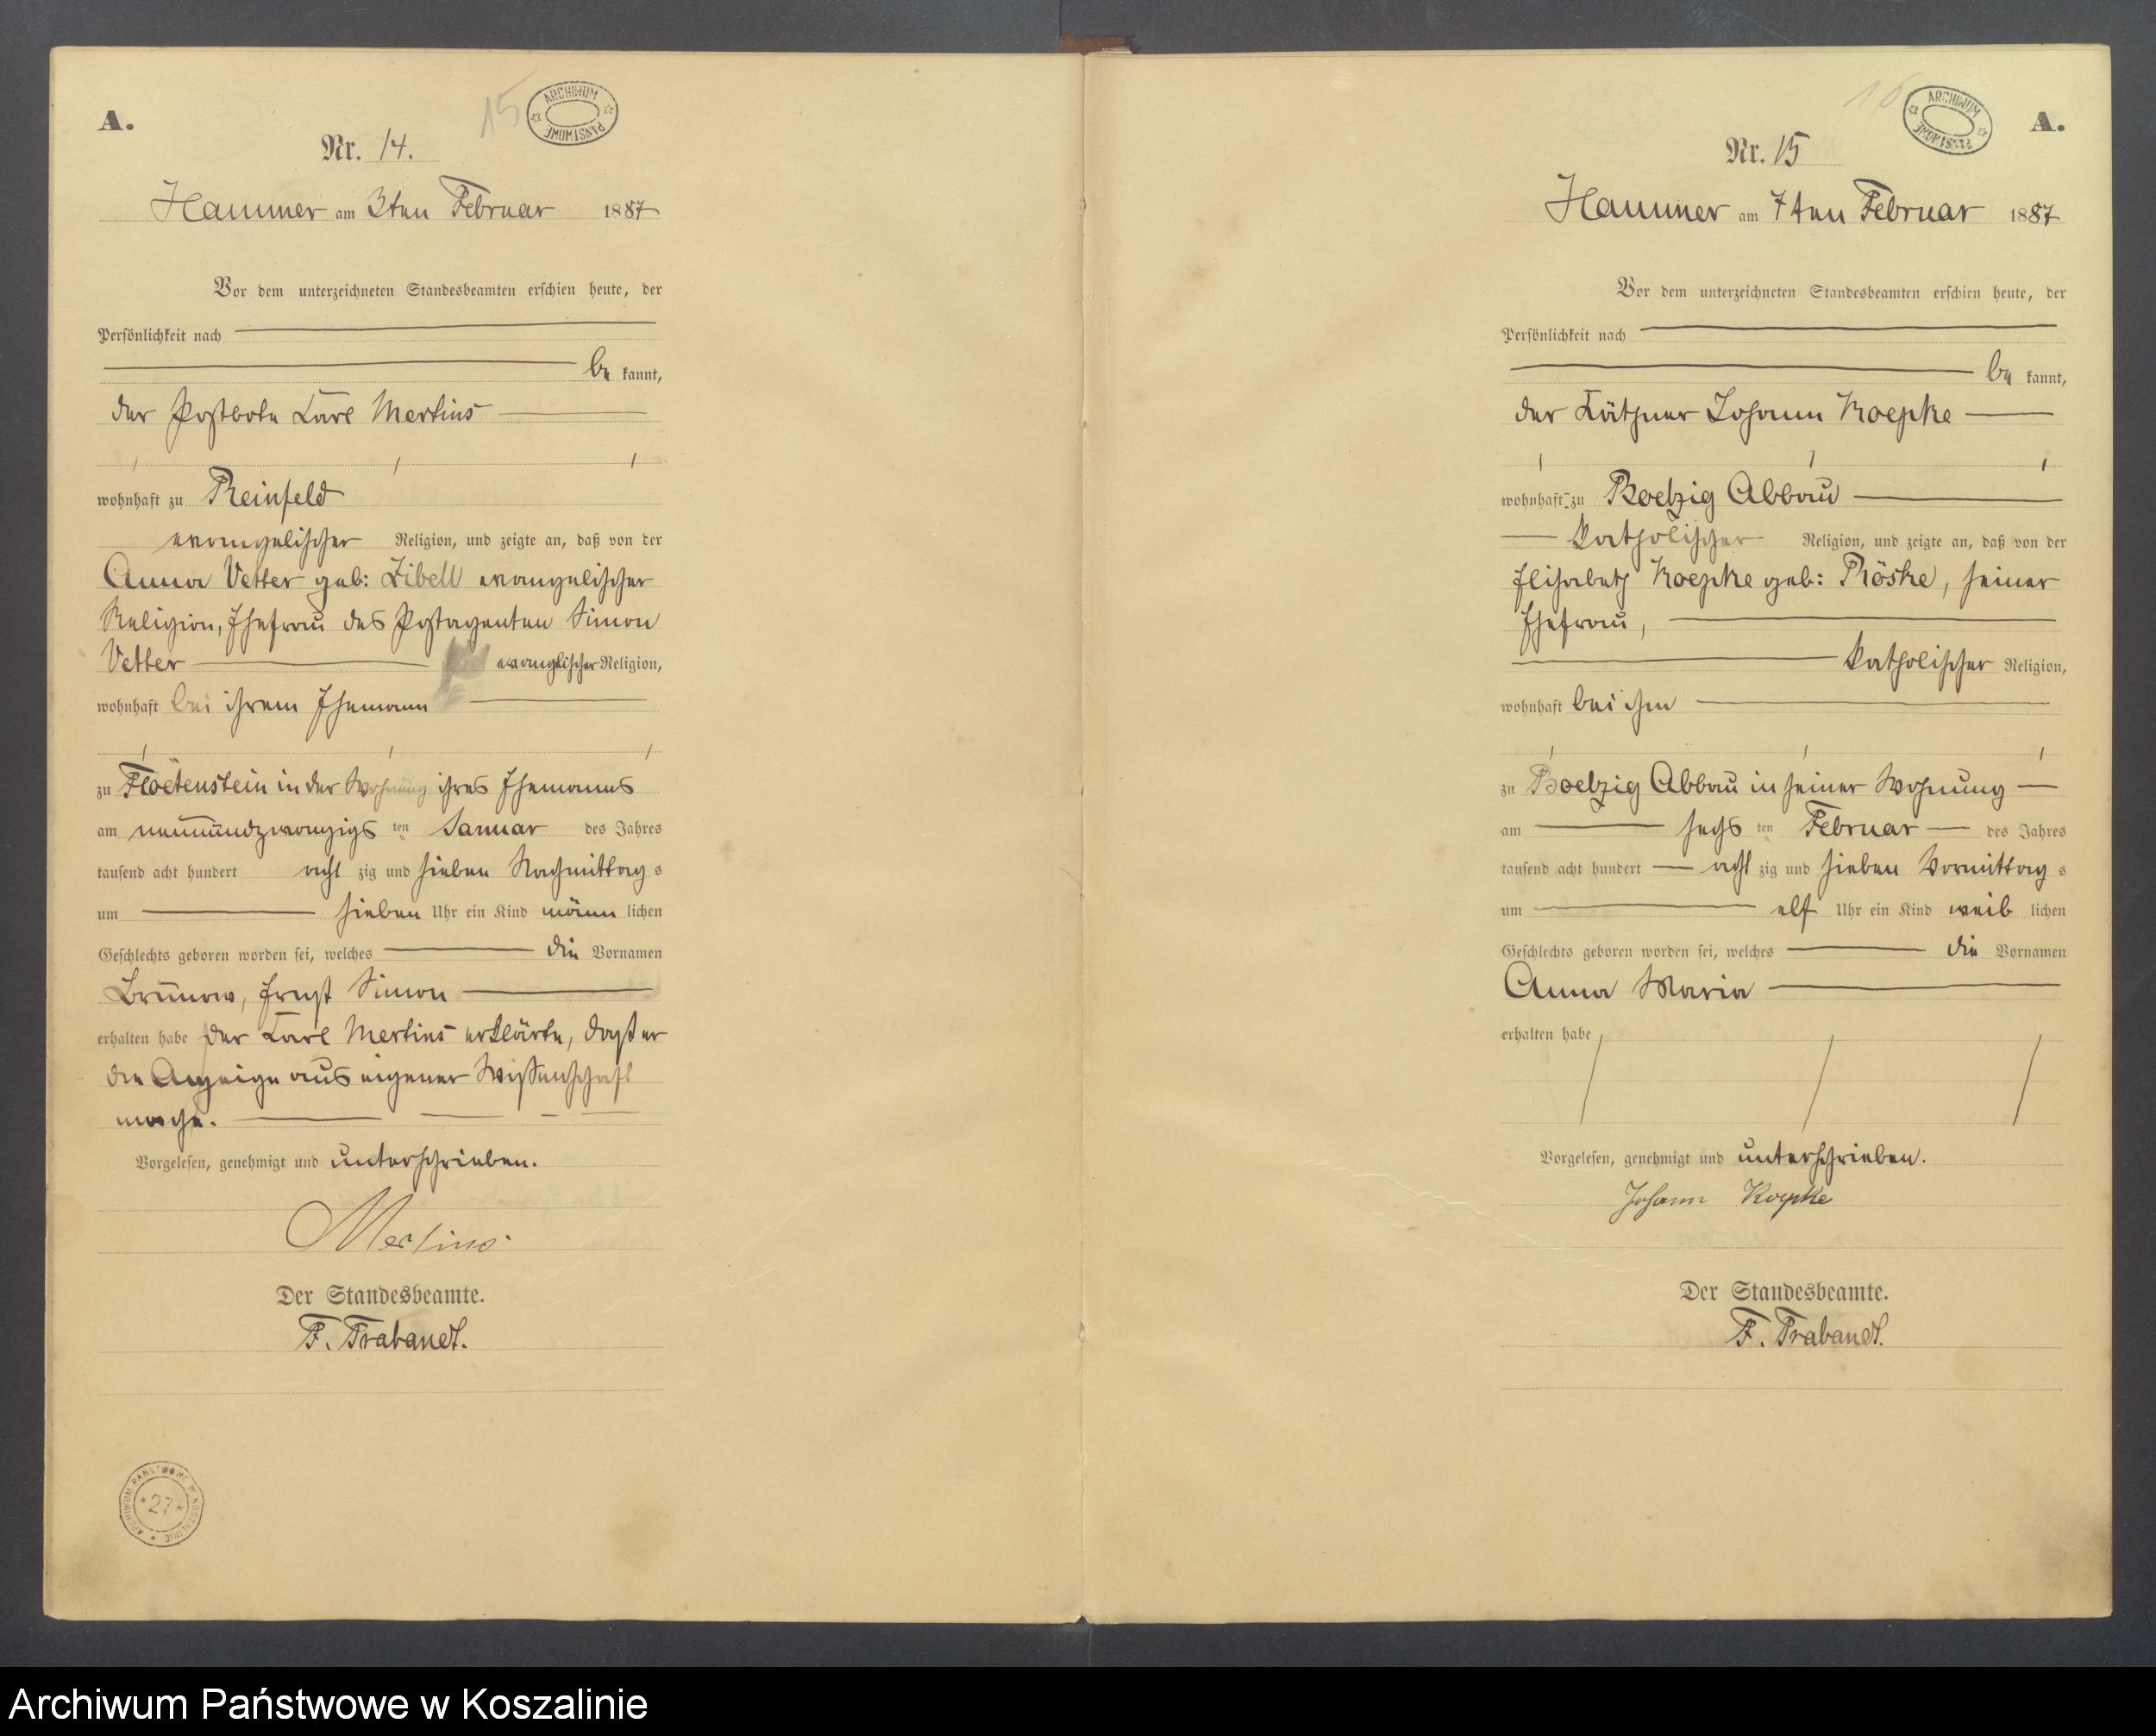 A.
15
ARCHIWUM PAŃSTWOWE
Nr. 14.
Hammer am 3ten Februar 1887
Vor dem unterzeichneten Standesbeamten erschien heute, der
Persönlichkeit nach
be kannt,
der Postbote Carl Mertins
wohnhaft zu Reinfeld
evangelischer Religion, und zeigte an, daß von der
Anna Vetter geb: Zibell evangelischer
Religion, Ehefrau des Postagenten Simon
Vetter evanglischer Religion,
wohnhaft bei ihrem Ehemann
zu Floetenstein in der Wohnung ihres Ehemannes
am neunundzwanzigs ten Januar des Jahres
tausend acht hundert acht zig und sieben Nachmittag s
um sieben Uhr ein Kind männ lichen
Geschlechts geboren worden sei, welches die Vornamen
Brunow, Ernst Simon
erhalten habe der Carl Mertins erklärte, daß er
die Anzeige aus eigener Wissenschaft
mache.
Vorgelesen, genehmigt und unterschrieben.
Mertins.
Der Standesbeamte.
F. Trabandt.
ARCHIWUM PAŃSTWOWE W KOSZALINIE
27
16
ARCHIWUM PAŃSTWOWE
A.
Nr. 15
Hammer am 7ten Februar 1887
Vor dem unterzeichneten Standesbeamten erschien heute, der
Persönlichkeit nach
be kannt,
der Käthner Johann Koepke
wohnhaft zu Poetzig Abbau
katholischer Religion, und zeigte an, daß von der
Elisabeth Koepke geb: Röske, seiner
Ehefrau,
katholischer Religion,
wohnhaft bei ihm
zu Poetzig Abbau in seiner Wohnung
am sechs ten Februar des Jahres
tausend acht hundert acht zig und sieben Vormittag s
um elf Uhr ein Kind weib lichen
Geschlechts geboren worden sei, welches die Vornamen
Anna Maria
erhalten habe
Vorgelesen, genehmigt und unterschrieben.
Johann Koepke
Der Standesbeamte.
F. Trabandt.
Archiwum Państwowe w Koszalinie